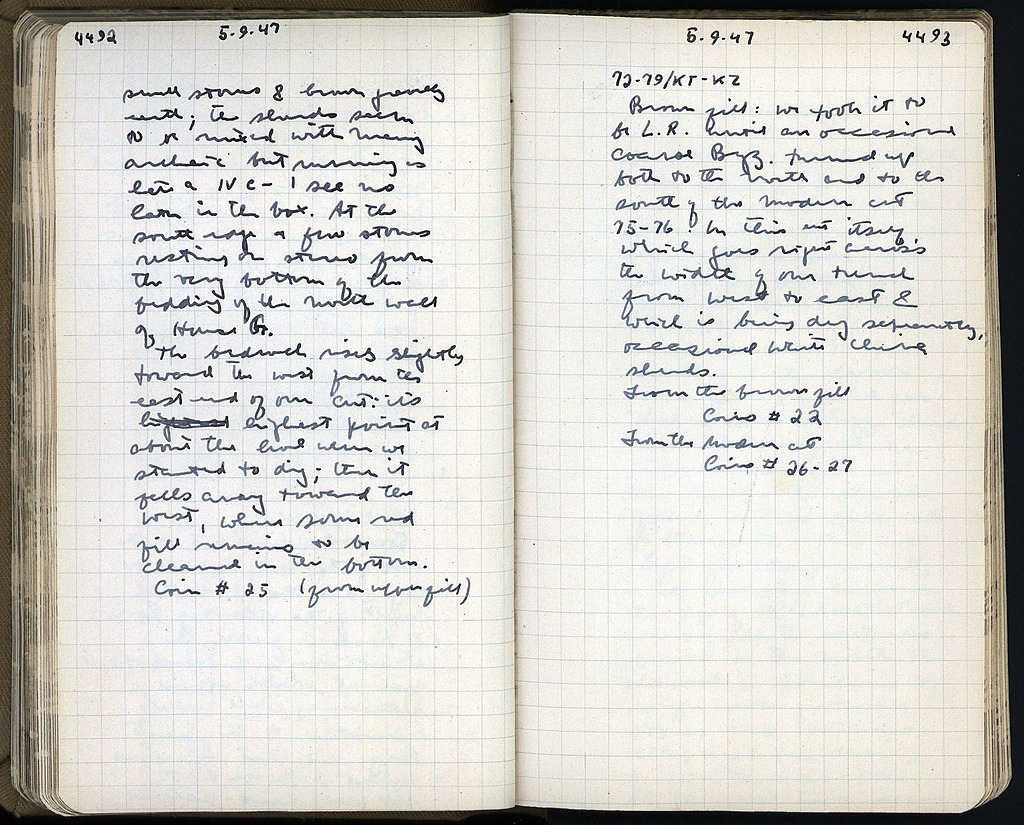 4492
5-9-47
small stones & brown gravelly
earth; the sherds seem
to be mixed with many
archaic but running as
late a IV c - I see no
later in the box. At the
south edge a few stones
resting on stereo from
the very bottom of the
bedding of the north wall
of House G.
The bedrock rises slightly
toward the west from the
east end of our cut: its
highest highest point at
about the level where we
started to dig; then it
falls away toward the
west, where some red
fill remains to be
cleaned in the bottom.
Coin # 25 (from upper fill)
5-9-47
4493
72-79/ΚΓ-ΚΖ
Brown fill: we took it to
be L.R. until an occasional
coarse Byz. turned up
both to the north and to the
south of the modern cut
75-76. In this cut itself
which goes right across
the width of our trench
from west to east &
which is being dug separately,
occasional white china
sherds.
From the brown fill
Coins # 22
From the modern cut
Coins # 26-27